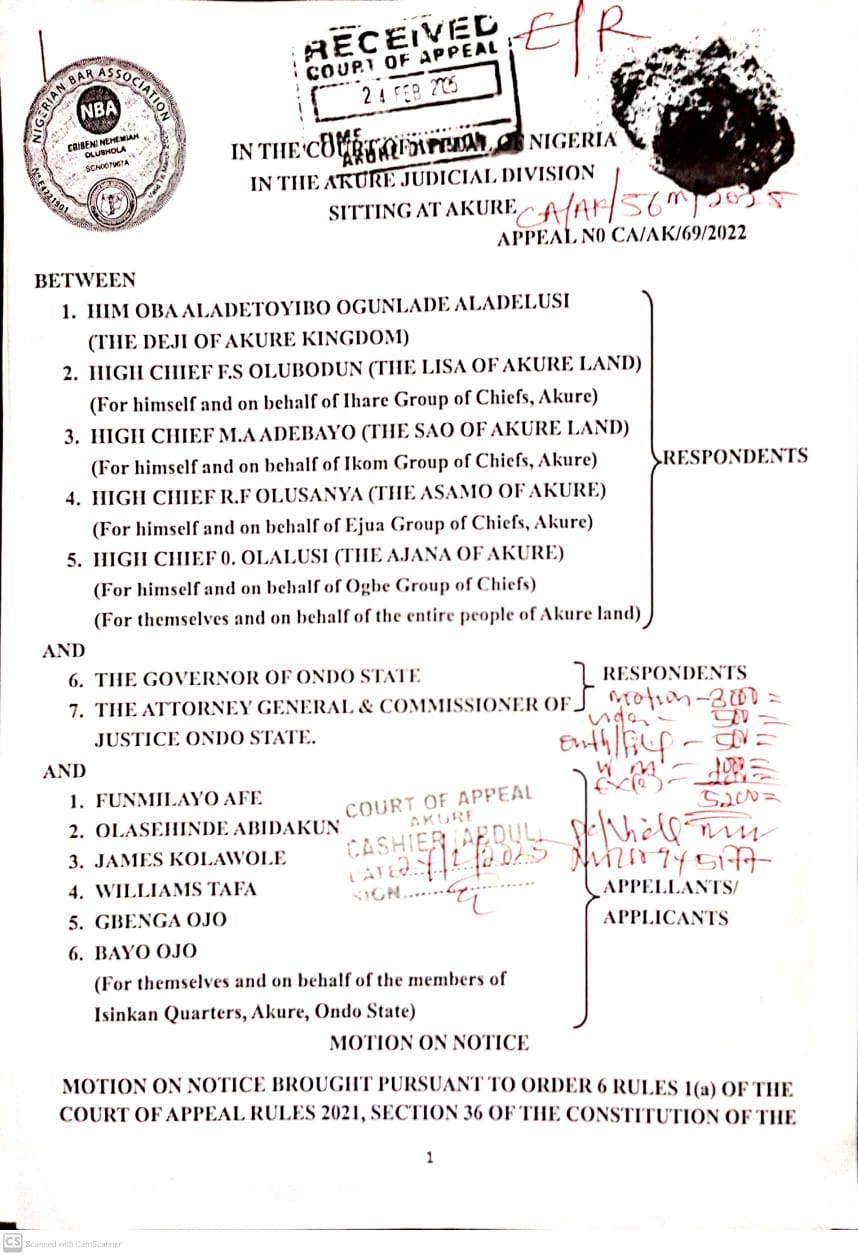 RECEIVED
COURT OF APPEAL
24 FEB 2025
TIME
E/R
NIGERIAN BAR ASSOCIATION
NBA
EBIBENI NEHEMIAH
OLUSHOLA
SCN007967A
IN THE COURT OF APPEAL OF NIGERIA
IN THE AKURE JUDICIAL DIVISION
SITTING AT AKURE
CA/AK/56M/2025
APPEAL N0 CA/AK/69/2022
BETWEEN
1. HIM OBA ALADETOYIBO OGUNLADE ALADELUSI
(THE DEJI OF AKURE KINGDOM)
2. HIGH CHIEF F.S OLUBODUN (THE LISA OF AKURE LAND)
(For himself and on behalf of Ihare Group of Chiefs, Akure)
3. HIGH CHIEF M.A ADEBAYO (THE SAO OF AKURE LAND)
(For himself and on behalf of Ikom Group of Chiefs, Akure)
RESPONDENTS
4. HIGH CHIEF R.F OLUSANYA (THE ASAMO OF AKURE)
(For himself and on behalf of Ejua Group of Chiefs, Akure)
5. HIGH CHIEF 0. OLALUSI (THE AJANA OF AKURE)
(For himself and on behalf of Ogbe Group of Chiefs)
(For themselves and on behalf of the entire people of Akure land)
AND
6. THE GOVERNOR OF ONDO STATE
RESPONDENTS
7. THE ATTORNEY GENERAL & COMMISSIONER OF
JUSTICE ONDO STATE.
motion - 3000 =
500 =
500 =
5200 =
AND
1. FUNMILAYO AFE
2. OLASEHINDE ABIDAKUN
3. JAMES KOLAWOLE
4. WILLIAMS TAFA
5. GBENGA OJO
6. BAYO OJO
(For themselves and on behalf of the members of
Isinkan Quarters, Akure, Ondo State)
COURT OF APPEAL
AKURE
CASHIER (ABDUL)
SIGN
APPELLANTS/
APPLICANTS
MOTION ON NOTICE
MOTION ON NOTICE BROUGHT PURSUANT TO ORDER 6 RULES 1(a) OF THE
COURT OF APPEAL RULES 2021, SECTION 36 OF THE CONSTITUTION OF THE
1
CS Scanned with CamScanner